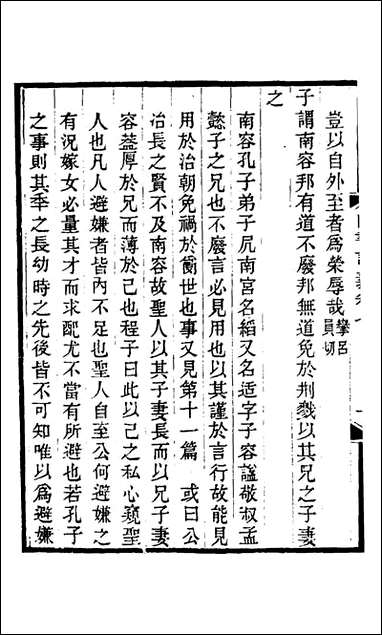 豈以自外至者爲榮辱哉攣呂員切
子謂南容邦有道不廢邦無道免於刑戮以其兄之子妻
之
南容孔子弟子凥南宮名縚又名适字子容謚敬叔孟
懿子之兄也不廢言必見用也以其謹於言行故能見
用於治朝免禍於亂世也事又見第十一篇　或曰公
冶長之賢不及南容故聖人以其子妻長而以兄子妻
容葢厚於兄而薄於己也程子曰此以己之私心窺聖
人也凡人避嫌者皆內不足也聖人自至公何避嫌之
有況嫁女必量其才而求配尤不當有所避也若孔子
之事則其秊之長幼時之先後皆不可知唯以爲避嫌